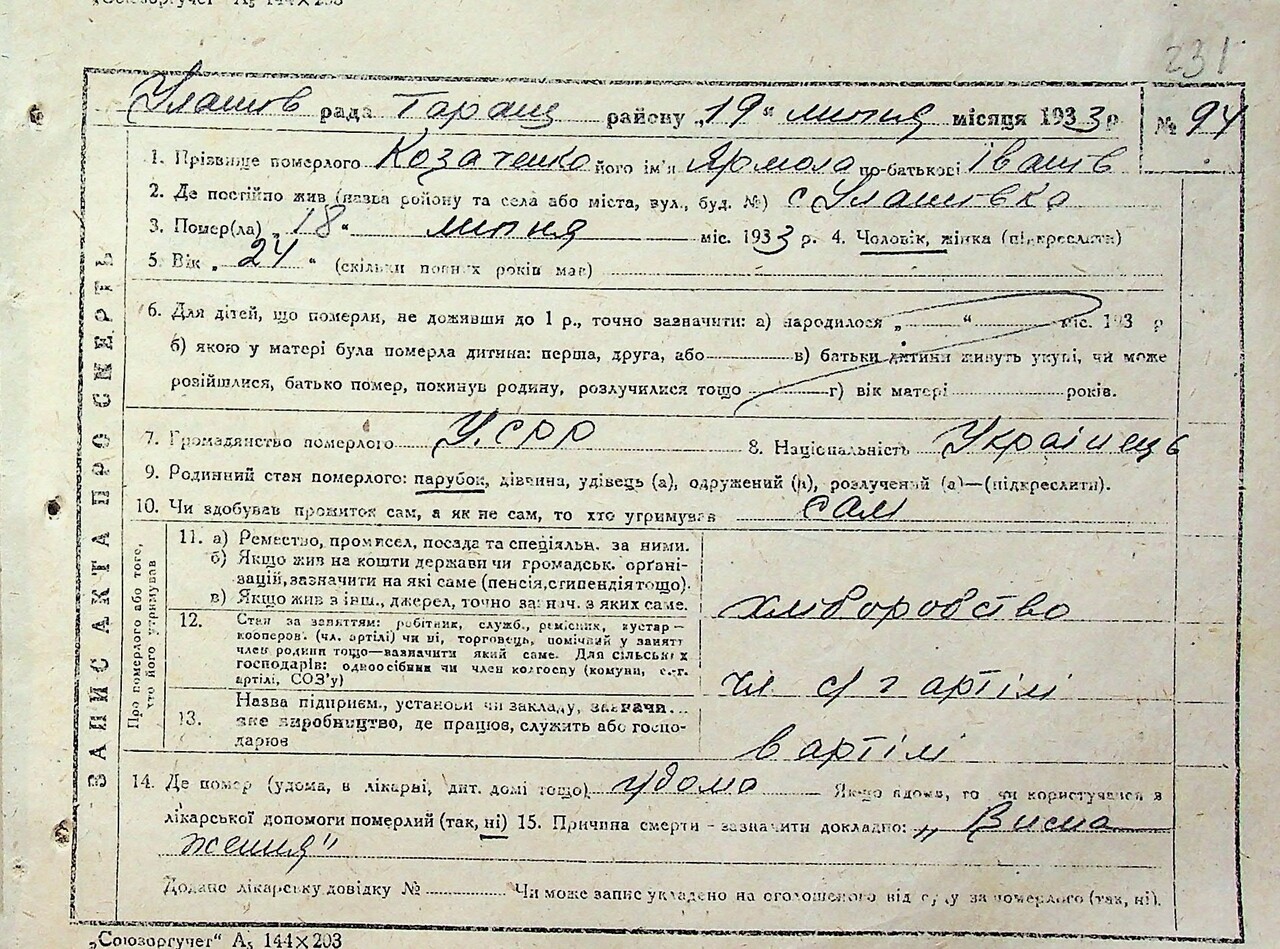 „Союзоргучет“ А5 144×203
231
Улашів рада Таращ району „19“ липня місяця 1933 р № 94
1. Прізвище померлого Козаченко його ім'я Ярмола по-батькові Іванів
2. Де постійно жив (назва району та села або міста, вул., буд. №) с Улашівка
3. Помер(ла) „18“ липня міс. 1933 р. 4. Чоловік, жінка (підкреслити)
5. Вік „24“ (скільки повних років мав)
6. Для дітей, що померли, не доживши до 1 р., точно зазначити: а) народилося „ “ міс. 193 р
б) якою у матері була померла дитина: перша, друга, або в) батьки дитини живуть укупі, чи може
розійшлися, батько помер, покинув родину, розлучилися тощо г) вік матері років.
7. Громадянство померлого У.СРР 8. Національність Українець
9. Родинний стан померлого: парубок, дівчина, удівець (а), одружений (а), розлучений (а)—(підкреслити).
10. Чи здобував прожиток сам, а як не сам, то хто утримував сам
ЗАПИС АКТА ПРО СМЕРТЬ
Про померлого або того, хто його утримував
11. а) Ремество, промисел, посада та спеціяльн. за ними.
б) Якщо жив на кошти держави чи громадськ. орґані-
зацій, зазначити на які саме (пенсія, стипендія тощо).
в) Якщо жив з інш., джерел, точно зазнач. з яких саме.
хліборобство
12. Стан за заняттям: робітник, служб., ремісник, кустар—
кооперов. (чл. артілі) чи ні, торговець, помічний у занятт
член родини тощо—вазначити який саме. Для сільських
господарів: одноосібник чи член колгоспу (комуни, с.-г.
артілі, СОЗ'у)
чл с/г артілі
13. Назва підприєм., установи чи закладу, зазначи...
яке виробництво, де працюв, служить або госпо-
дарюв
в артілі
14. Де помер (удома, в лікарні, дит. домі тощо) удома Якщо вдома, то чи користувався з
лікарської допомоги померлий (так, ні) 15. Причина смерти - зазначити докладно: „Висна
ження"
Додано лікарську довідку № Чи може запис укладено на оголошеного від суду за померлого (так, ні).
„Союзоргучет“ А5 144×203